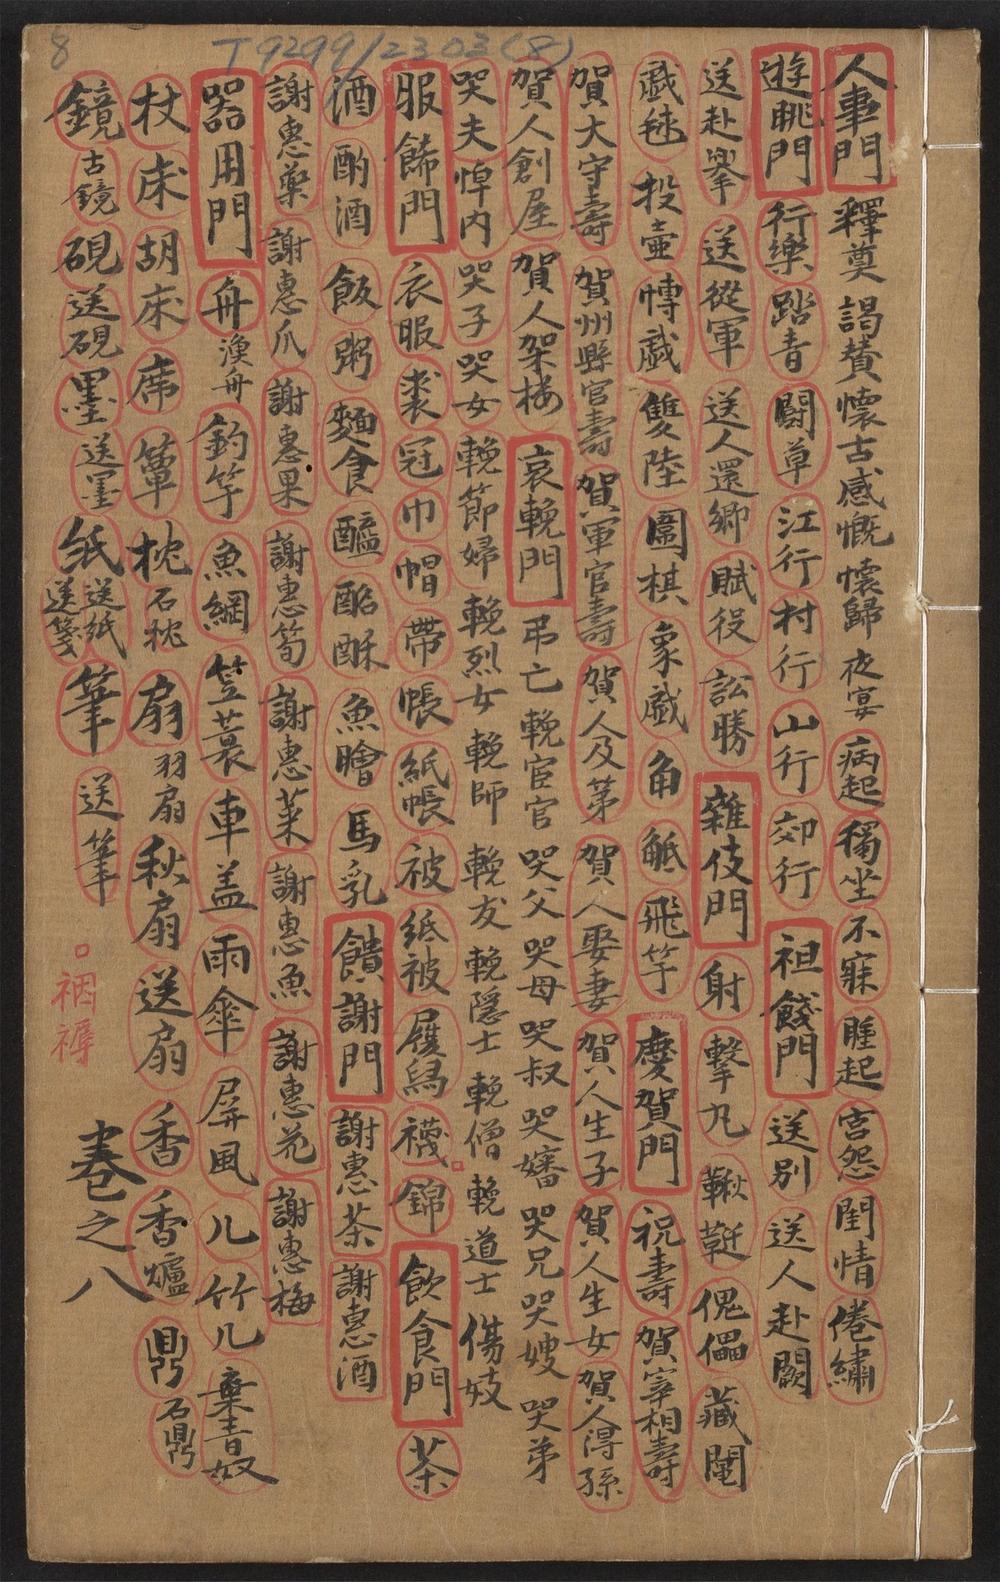 8
T9299/2303(8)
人事門 釋奠 謁贊 懷古 感慨 懷歸 夜宴 病起 獨坐 不寐 睡起 宮怨 閨情 倦繡
遊眺門 行樂 踏青 鬪草 江行 村行 山行 郊行 祖餞門 送別 送人赴闕
送赴擧 送從軍 送人還鄉 賦役 訟勝 雜伎門 射 擊丸 鞦韆 傀儡 藏鬮
戱毬 投壷 博戱 雙陸 圍棋 象戱 角觝 飛竿 慶賀門 祝壽 賀宰相壽
賀大守壽 賀州縣官壽 賀軍官壽 賀人及第 賀人娶妻 賀人生子 賀人生女 賀人淂孫
賀人創屋 賀人架楼 哀輓門 弔亡 輓宦官 哭父 哭母 哭叔 哭嬸 哭兄 哭嫂 哭弟
哭夫 悼内 哭子 哭女 輓節婦 輓烈女 輓師 輓友 輓隱士 輓僧 輓道士 傷妓
服餙門 衣服 裘 冠 巾 帽 帶 帳 紙帳 被 紙被 履舄 襪 錦 飲食門 茶
酒 酌酒 飯 粥 麵食 醢 酩酥 魚膾 馬乳 饋謝門 謝惠茶 謝惠酒
謝惠藥 謝惠爪 謝惠果 謝惠筍 謝惠菜 謝惠魚 謝惠花 謝惠梅
器用門 舟 漁舟 釣竿 魚網 笠蓑 車盖 雨傘 屏風 儿 竹儿 棄青奴
杖 床 胡床 席 簟 枕 石枕 扇 羽扇 秋扇 送扇 香 香爐 鼎 石鼎
鏡 古鏡 硯 送硯 墨 送墨 紙 送紙 送箋 筆 送筆 裀褥
卷之八